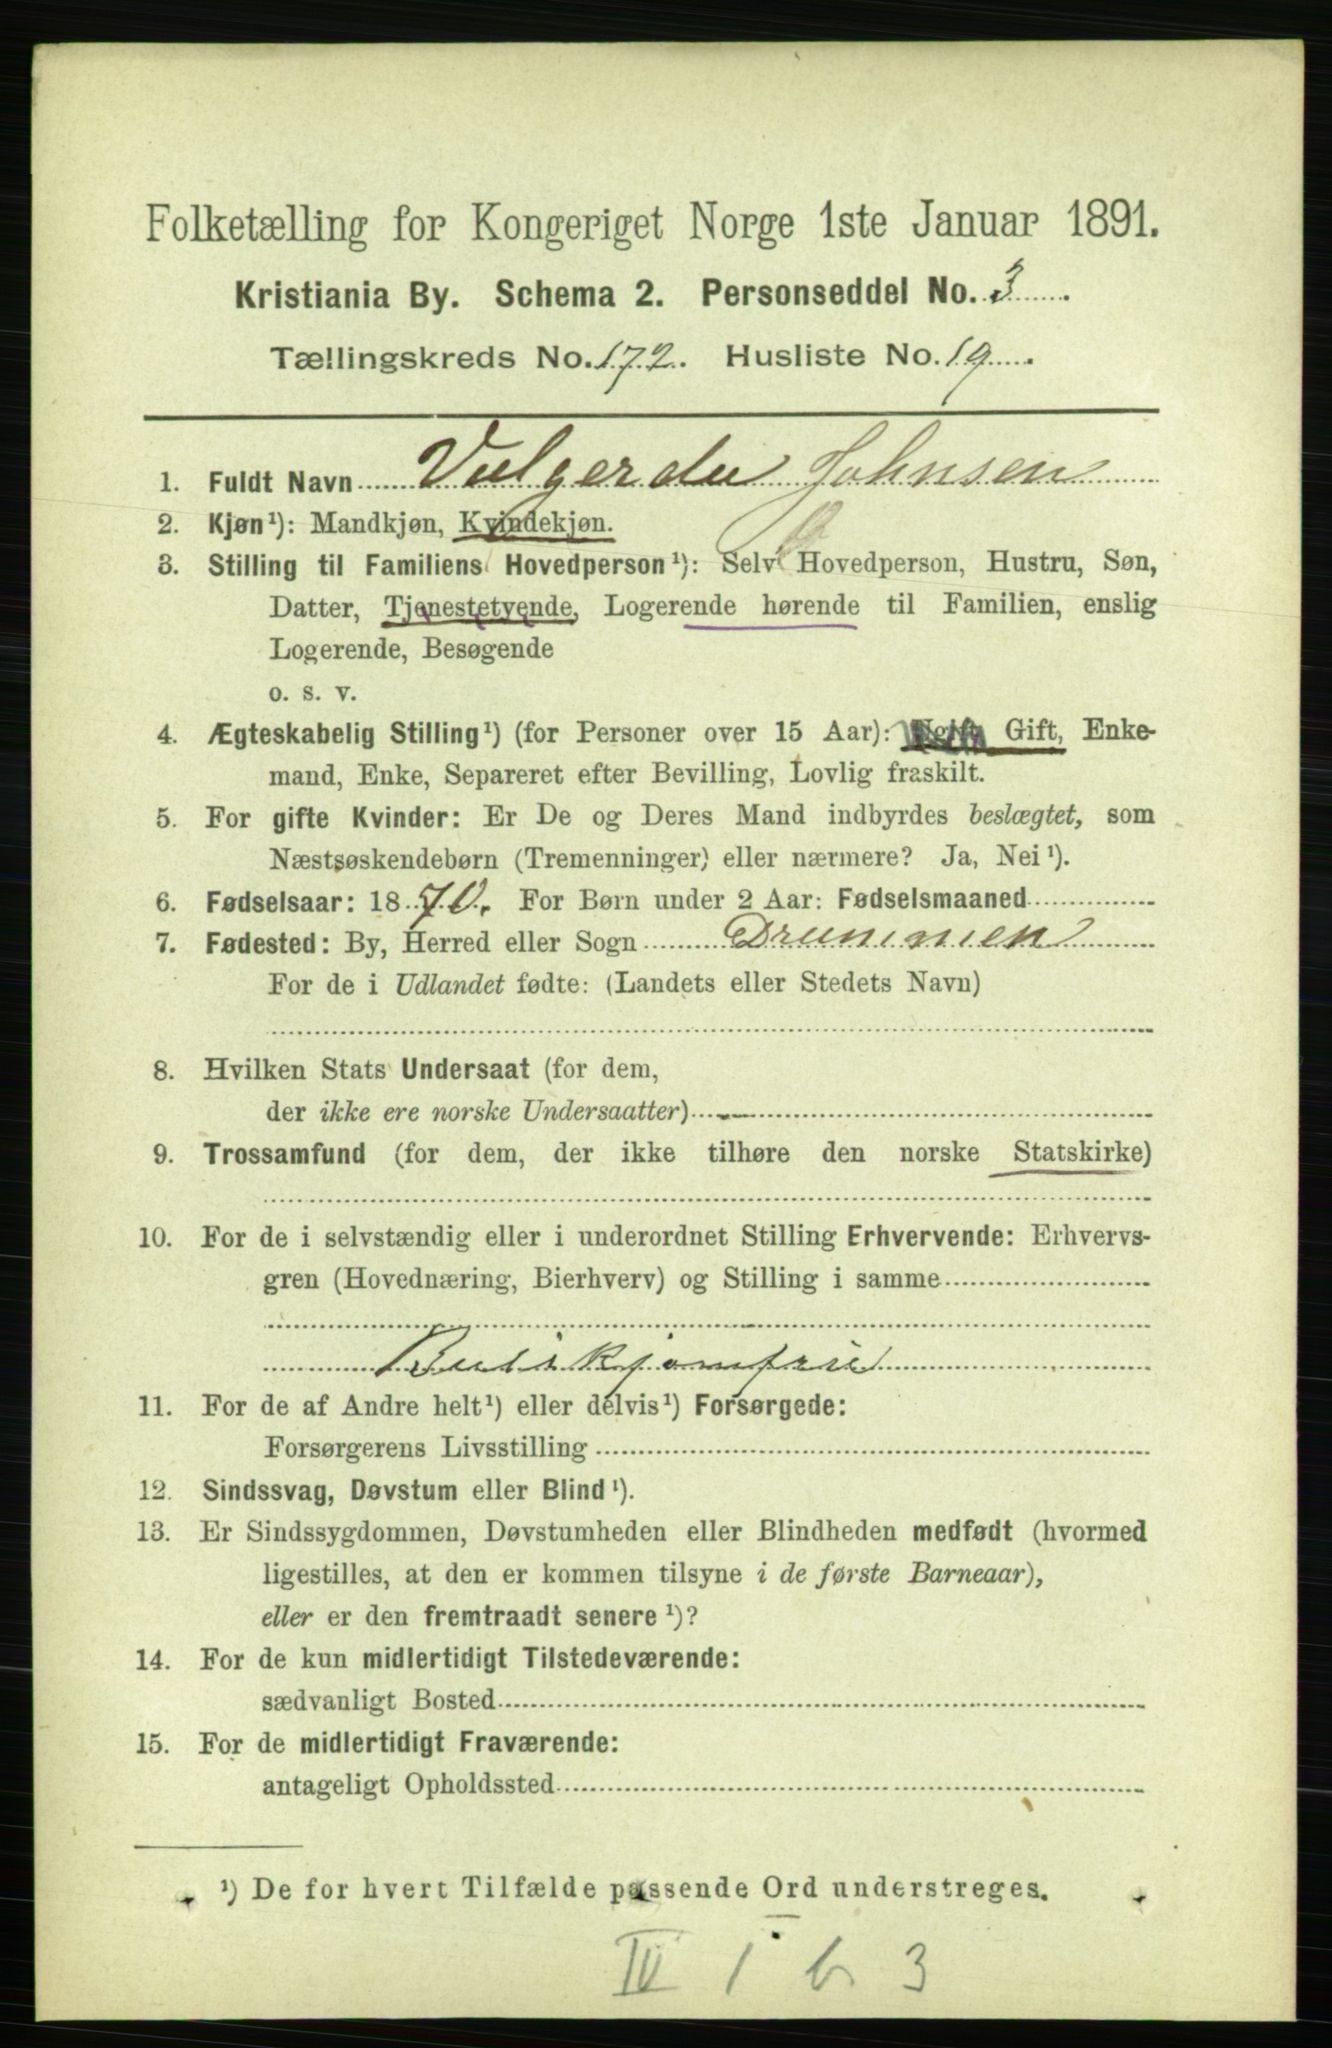 Folketælling for Kongeriget Norge 1ste Januar 1891.
Kristiania By. Schema 2. Personseddel No. 3.
Tællingskreds No. 172. Husliste No. 19.
1. Fuldt Navn Valgerda Johnsen
2. Kjøn¹): Mandkjøn, Kvindekjøn.
3. Stilling til Familiens Hovedperson¹): Selv Hovedperson, Hustru, Søn,
Datter, Tjenestetyende, Logerende hørende til Familien, enslig
Logerende, Besøgende
o. s. v.
4. Ægteskabelig Stilling¹) (for Personer over 15 Aar): Ugift, Gift, Enke-
mand, Enke, Separeret efter Bevilling, Lovlig fraskilt.
5. For gifte Kvinder: Er De og Deres Mand indbyrdes beslægtet, som
Næstsøskendebørn (Tremenninger) eller nærmere? Ja, Nei¹).
6. Fødselsaar: 1870. For Børn under 2 Aar: Fødselsmaaned
7. Fødested: By, Herred eller Sogn Drammen
For de i Udlandet fødte: (Landets eller Stedets Navn)
8. Hvilken Stats Undersaat (for dem,
der ikke ere norske Undersaatter)
9. Trossamfund (for dem, der ikke tilhøre den norske Statskirke)
10. For de i selvstændig eller i underordnet Stilling Erhvervende: Erhvervs-
gren (Hovednæring, Bierhverv) og Stilling i samme
Butikjomfru
11. For de af Andre helt¹) eller delvis¹) Forsørgede:
Forsørgerens Livsstilling
12. Sindssvag, Døvstum eller Blind¹).
13. Er Sindssygdommen, Døvstumheden eller Blindheden medfødt (hvormed
ligestilles, at den er kommen tilsyne i de første Barneaar),
eller er den fremtraadt senere¹)?
14. For de kun midlertidigt Tilstedeværende:
sædvanligt Bosted
15. For de midlertidigt Fraværende:
antageligt Opholdssted
¹) De for hvert Tilfælde passende Ord understreges.
IV 1 b 3